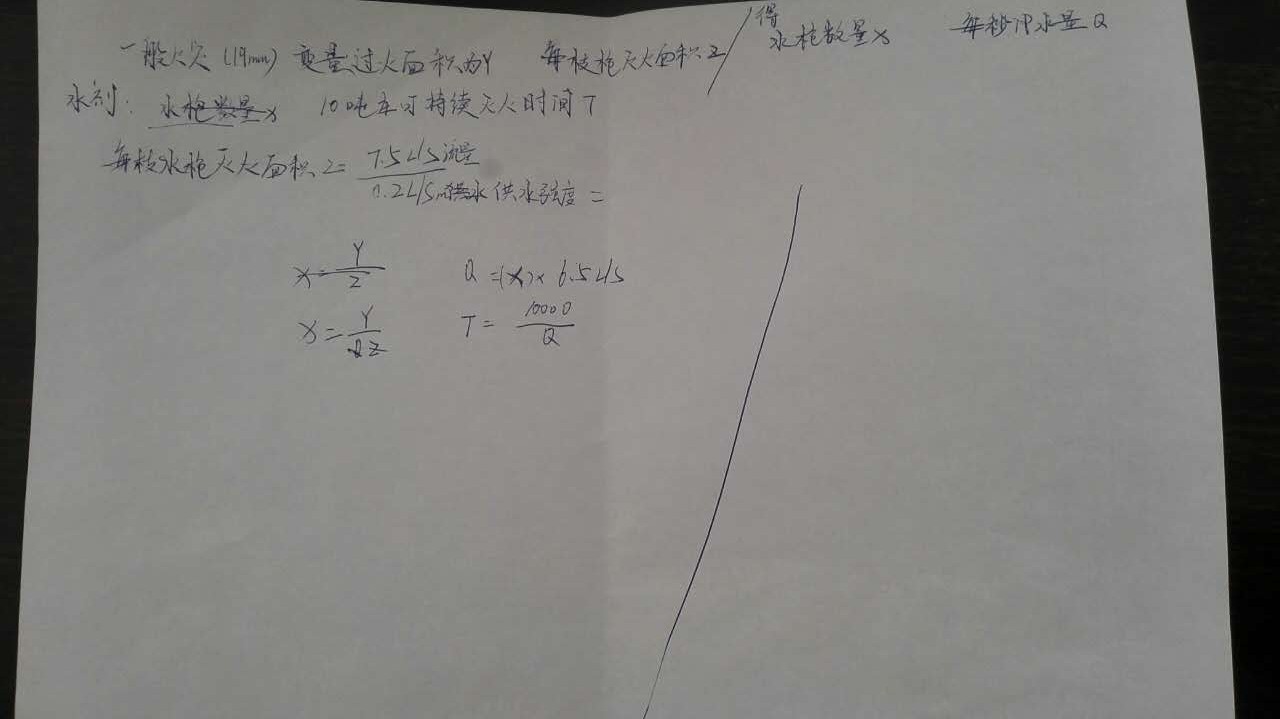 一般火灾(19mm) 变量过火面积为Y 每枝枪灭火面积Z/得水枪数量x 每秒用水量Q
水剂: 水枪数量x 10吨车可持续灭火时间T
每枝水枪灭火面积Z=7.5L/S流量/0.2L/S供水强度=
x=Y/Z Q=(x)×6.5L/S
x=Y/Z T=10000/Q